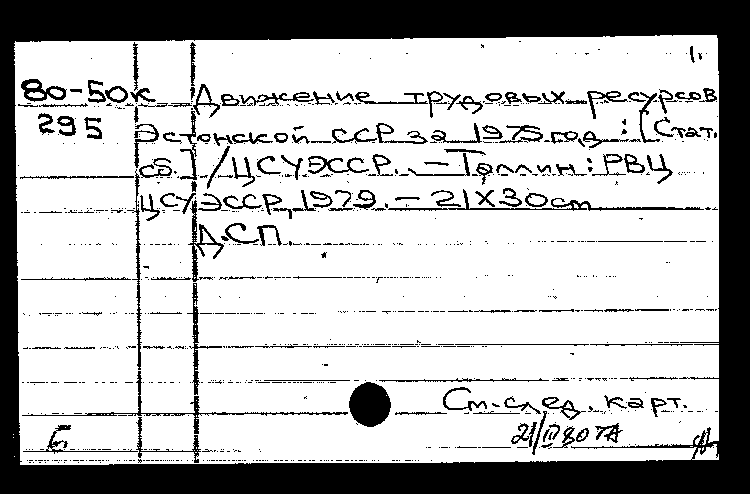 1.
80-50к Движение трудовых ресурсов
295 Эстонской ССР за 1975 год : [Стат.
сб.] / ЦСУ ЭССР. – Таллин : РВЦ
ЦСУ ЭССР, 1979. – 21X30 cm
Д.С.П.
См. след. карт.
Б 21/III 80 ТА